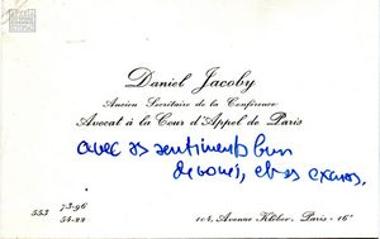 Daniel Jacoby
Ancien Secrétaire de la Conférence
Avocat à la Cour d'Appel de Paris
avec ses sentiments bien
dévoués, et ses excuses.
553 73-96
54-22
104, Avenue Kléber, Paris - 16e